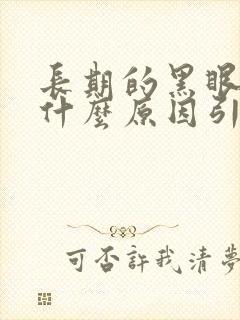 長期的黑眼
什麼原因引
可否許我清夢